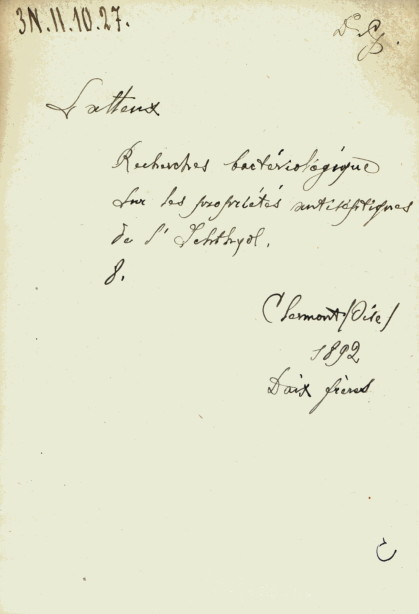 3N.11.10.27.
Latteux
Recherches bactériologique
sur les propriétés antiséptiques
de l'Ichthyol.
8.
Clermont/Oise/
1892
Daix frères